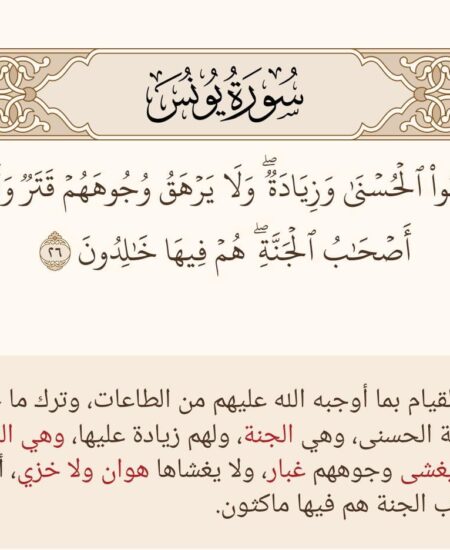 سُورَةُ يُونُسَ
ٱلۡحُسۡنَىٰ وَزِيَادَةٞۖ وَلَا يَرۡهَقُ وُجُوهَهُمۡ قَتَرٞ
أَصۡحَٰبُ ٱلۡجَنَّةِۖ هُمۡ فِيهَا خَٰلِدُونَ ٢٦
لقيام بما أوجبه الله عليهم من الطاعات، وترك ما
الحسنى، وهي الجنة، ولهم زيادة عليها، وهي
يغشى وجوههم غبار، ولا يغشاها هوان ولا خزي،
الجنة هم فيها ماكثون.